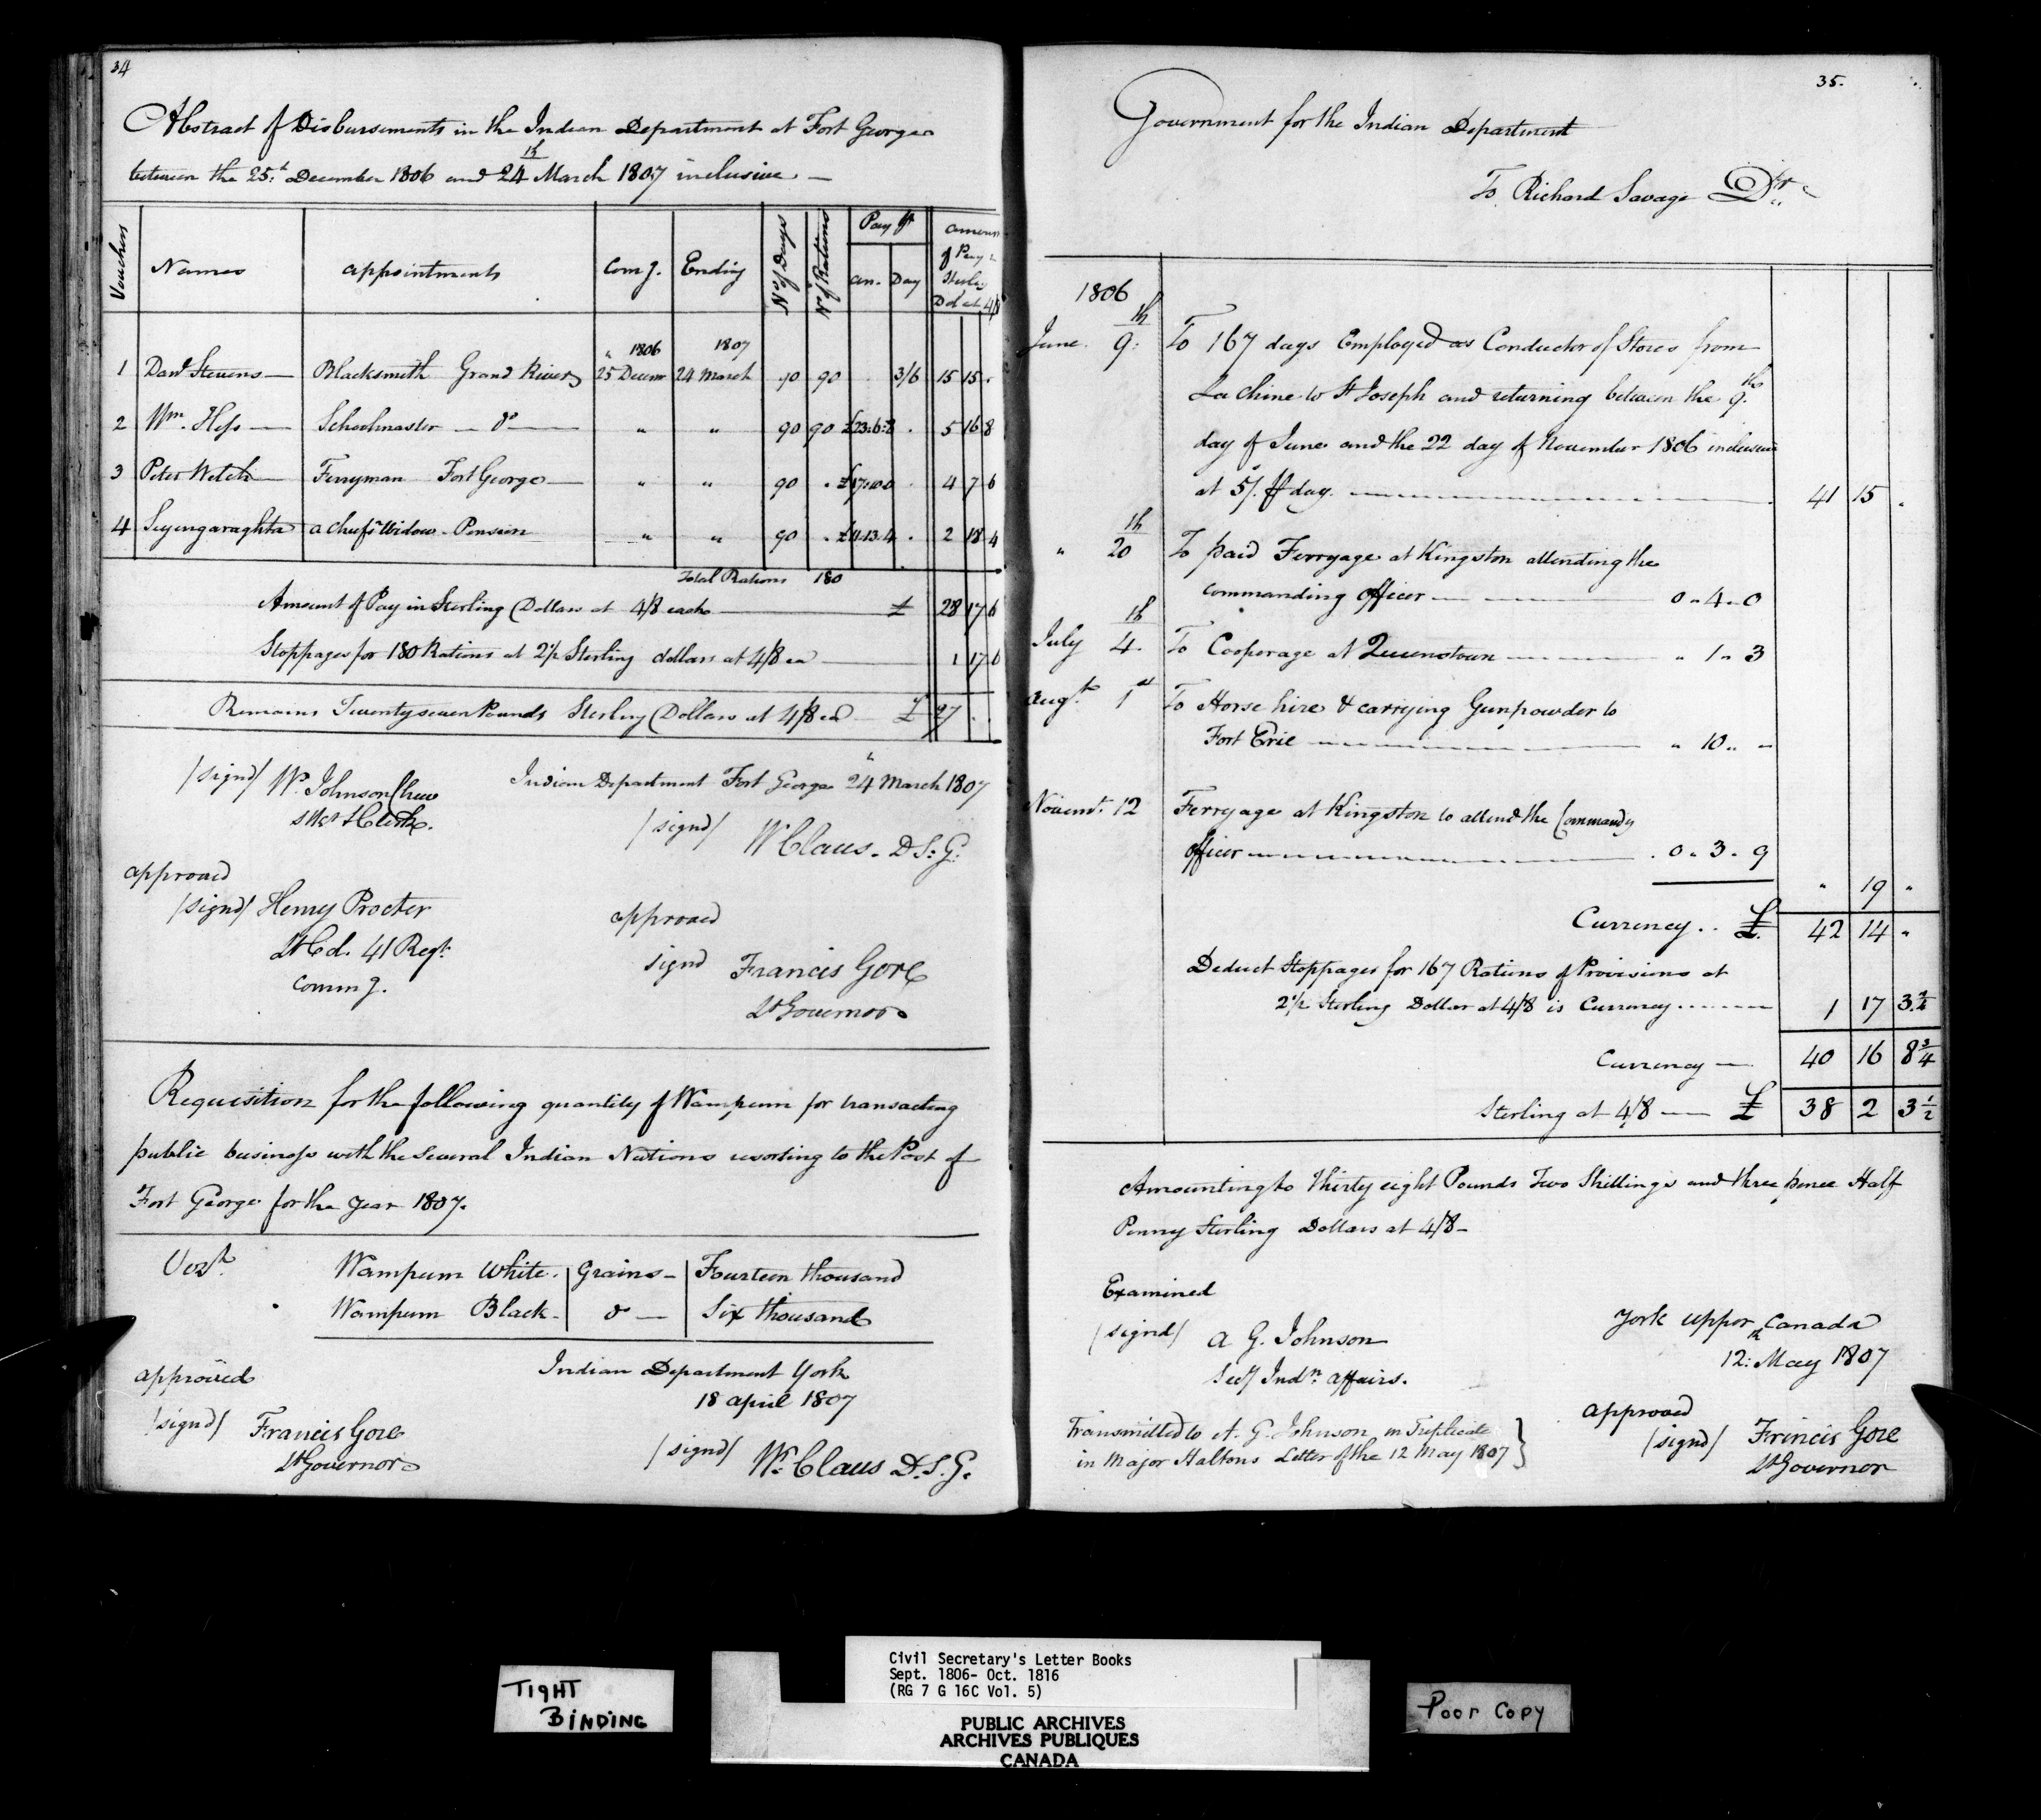 34
Abstract of Disbursements in the Indian Department at Fort George
between the 25th December 1806 and 24th March 1807 inclusive —
Vouchers | Names | appointments | Comg. | Ending | No of Days | No of Rations | Pay pr an. | Day | amount of Pay in Sterlg Dol at 4/8
1806 1807
1 Davd Stevens — Blacksmith Grand River 25 Decemr 24 March 90 90 . 3/6 15 15 .
2 Wm. Hess — Schoolmaster — do — " " 90 90 £23.6.8 . 5 16 8
3 Peter Welch — Ferryman Fort George — " " 90 . £17.10.0 . 4 7 6
4 Seyengaraghta a chiefs Widow - Pension " " 90 . £11.13.4 . 2 18 4
Total Rations 180
Amount of Pay in Sterling (Dollars at 4/8 each — £ 28 17 6
Stoppages for 180 Rations at 2½ Sterling dollars at 4/8 ea — 1 17 6
Remains Twenty seven Pounds Sterling (Dollars at 4/8 ea — £ 27 . .
/signd/ W. Johnson Chew
SKr & Clerk.
Indian Department Fort George 24th March 1807
/signd/ W Claus. D.S.G.
approved
/signd/ Henry Procter
Lt Col. 41 Regt.
Commg.
approved
signd Francis Gore
Lt Governor
Requisition for the following quantity of Wampum for transacting
public business with the several Indian Nations resorting to the Post of
Fort George for the year 1807.
Vizt.
Wampum White. | Grains — | Fourteen thousand
Wampum Black — | do — | Six thousand
Indian Department York
18 april 1807
approved
/signd/ Francis Gore
Lt Governor
/signd/ Wm. Claus D.S.G.
35.
Government for the Indian Department
To Richard Savage Dr.
1806
June 9th. To 167 days Employed as Conductor of Stores from
La Chine to St Joseph and returning between the 9th.
day of June and the 22 day of November 1806 inclusive
at 5/. pr day. — 41 15 .
" 20th To paid Ferryage at Kingston attending the
commanding officer — 0 " 4 " 0
July 4th. To Cooperage at Queenstown — " 1 " 3
Augt. 1st To Horse hire & carrying Gunpowder to
Fort Erie — " 10 " "
Novemr. 12 Ferryage at Kingston to attend the Commandg
officer — 0 " 3 " 9
" 19 "
Currency . . £ 42 14 "
Deduct Stoppages for 167 Rations of Provisions at
2½ Sterling Dollar at 4/8 is Currency — 1 17 3 ¼
Currency — 40 16 8 ¾
Sterling at 4/8 — £ 38 2 3 ½
Amounting to Thirty eight Pounds Two Shillings and three pence Half
Penny Sterling Dollars at 4/8 —
Examined
/signd/ A G. Johnson
Secy Indn. affairs.
York upper Canada
12th May 1807
Transmitted to A. G. Johnson in Triplicate
in Major Haltons Letter of the 12 May 1807 }
approved
/signd/ Francis Gore
Lt Governor
TIGHT
BINDING
Civil Secretary's Letter Books
Sept. 1806- Oct. 1816
(RG 7 G 16C Vol. 5)
PUBLIC ARCHIVES
ARCHIVES PUBLIQUES
CANADA
Poor Copy